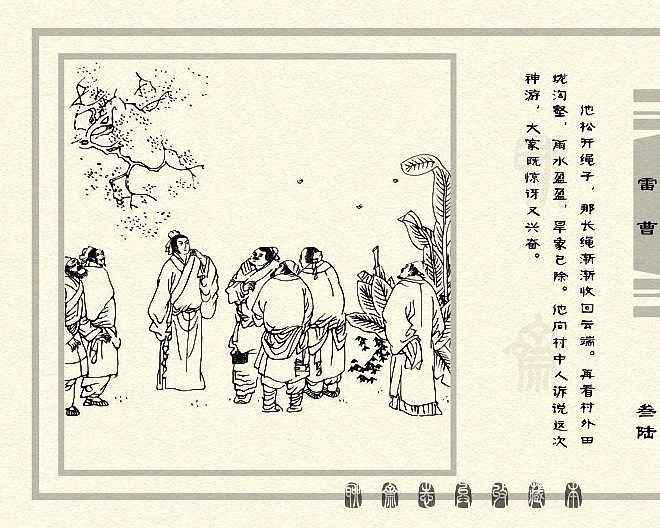 他松开绳子，那长绳渐渐收回云端。再看村外田
垅沟壑，雨水盈盈，旱象已除。他向村中人诉说这次
神游，大家既惊讶又兴奋。
雷曹
叁陆
聊斋志异收藏本